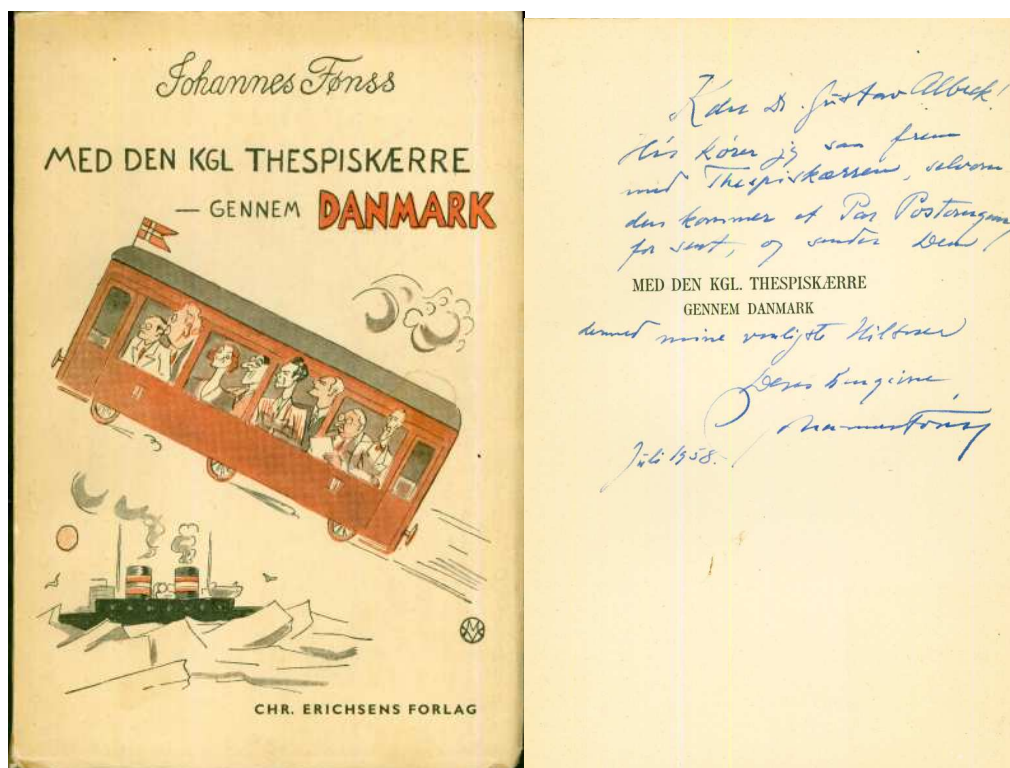 Johannes Fønss
MED DEN KGL THESPISKÆRRE
— GENNEM DANMARK
CHR. ERICHSENS FORLAG
Kære Dr. Gustav Albeck!
Her kører jeg saa frem
med Thespiskærren, selvom
den kommer et Par
for sent, og sender Dem
MED DEN KGL. THESPISKÆRRE
GENNEM DANMARK
hermed mine venligste Hilsner
Deres hengivne
Johannes Fønss
Juli 1958.